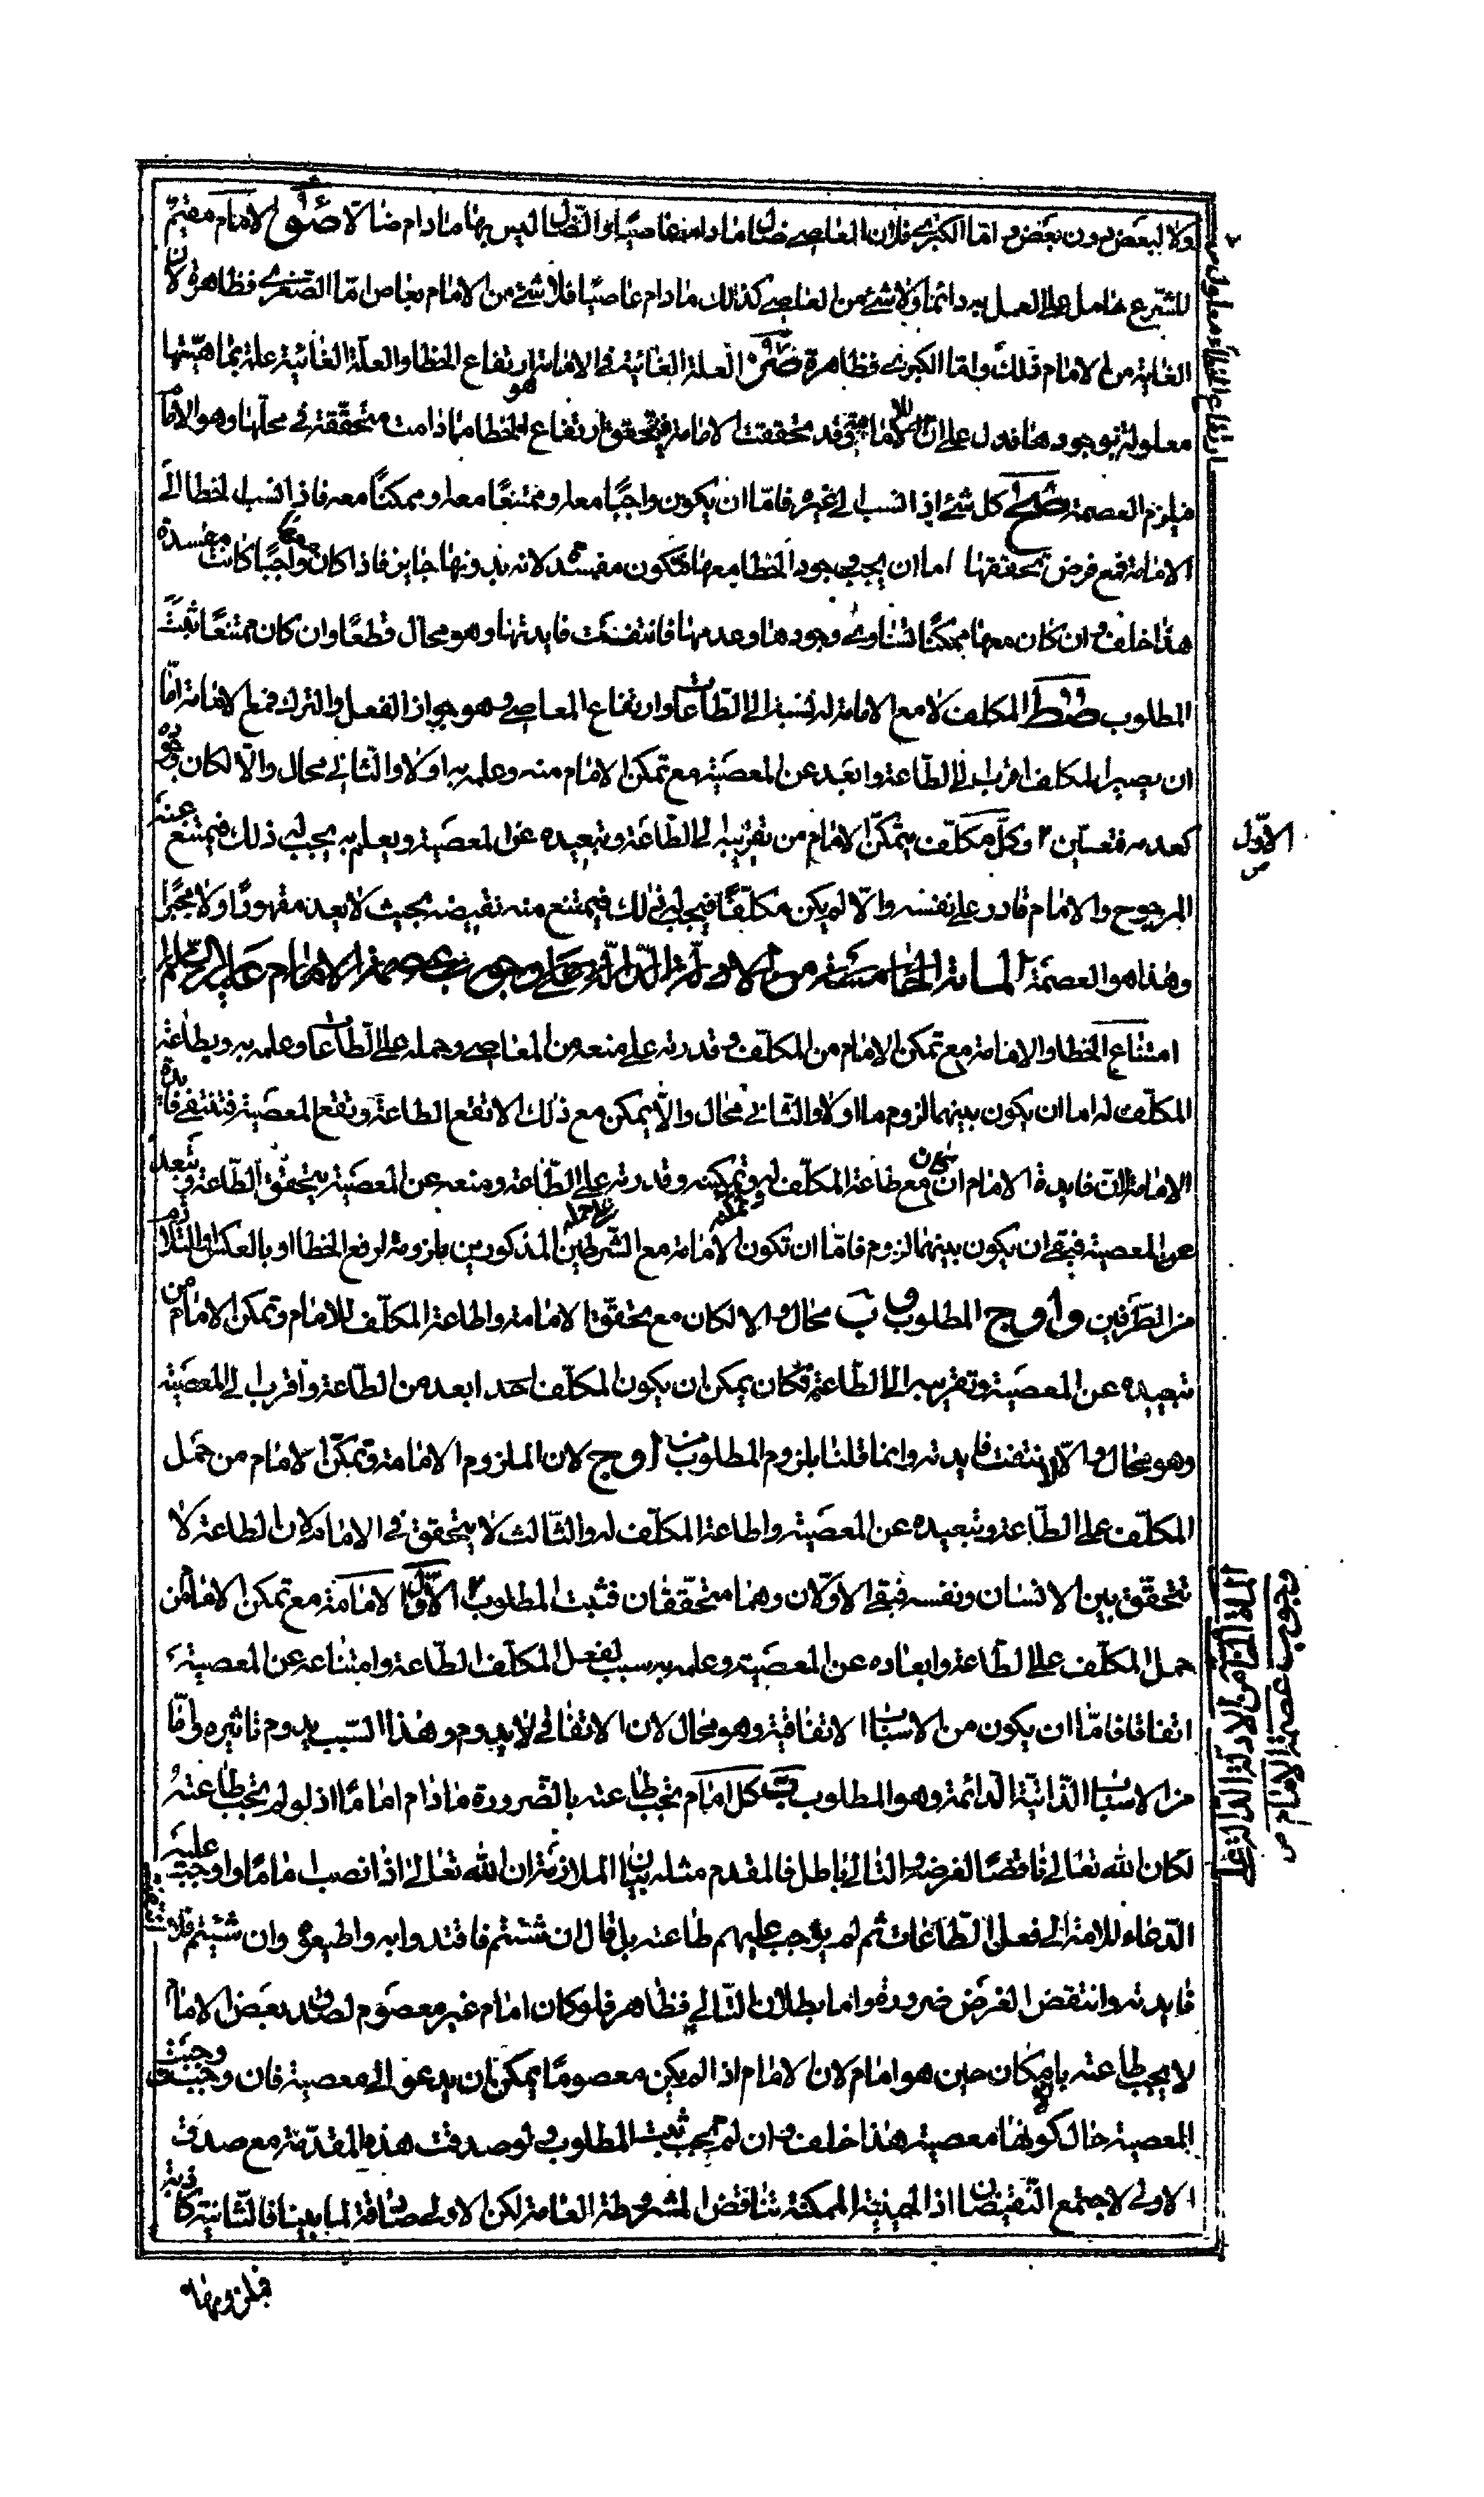 ولا لبعض دون بعض و اما الكبرى فلان العاصي ضال ما دام عاصيا والضال ليس بهاد ما دام ضالا الامام مقيم
للشرع حامل على العمل به دائما ولا شئ من العاصي كذلك ما دام عاصيا فلا شئ من الامام بعاص اما الصغرى فظاهرة لان
الغاية من الامام ذلك واما الكبرى فظاهرة العلة الغائية في الامامة ارتفاع الخطا والعلة الغائية علة بماهيتها
معلولة بوجودها فدل على ان الامامة وقد تحققت الامامة فيتحقق ارتفاع الخطا ما دامت متحققة في محلها وهو الامام
فيلزم العصمة كل شئ اذا نسب الى غيره فاما ان يكون واجبا معه او ممتنعا معه او ممكنا معه فاذا نسب الخطا الى
الامامة فمع فرض تحققها اما ان يجب وجود الخطا معها فتكون مفسدة لانه بدونها جايز فاذا كان معها واجبا كانت مفسدة
هذا خلف وان كان معها ممكنا تساوى وجودها وعدمها فانتفت فايدتها وهو محال قطعا وان كان ممتنعا ثبت
المطلوب المكلف لا مع الامامة له نسبة الى الطاعات وارتفاع المعاصي وهو جواز الفعل والترك فمع الامامة اما
ان يصير المكلف اقرب الى الطاعة وابعد عن المعصية مع تمكن الامام منه وعلمه به او لا والثاني محال والا لكان وجوده
كعدمه فتعين وكل مكلف يتمكن الامام من تقريبه الى الطاعة وتبعيده عن المعصية ويعلم به يجب له ذلك فيمتنع عنه
المرجوح والامام قادر على نفسه والا لم يكن مكلفا فيجب له ذلك فيمتنع منه نقيضه بحيث لا يعد مقهورا ولا مجبرا
وهذا هو العصمة المائة الخامسة من الادلة الدالة على وجوب عصمة الامام عليه السلم
امتناع الخطا والامامة مع تمكن الامام من المكلف و قدرته على منعه من المعاصي وحمله على الطاعات وعلمه به وبطاعة
المكلف له اما ان يكون بينهما لزوم ما او لا والثاني محال والا يمكن مع ذلك الا تقع الطاعة وتقع المعصية فتنتفي فايدة
الامامة لان فايدة الامام ان مع طاعة المكلف له وتمكينه وقدرته على الطاعة ومنعه عن المعصية يتحقق الطاعة ويبعد
عن المعصية فبقي ان يكون بينهما لزوم فاما ان تكون الامامة مع الشرطين المذكورين ملزومة لرفع الخطا او بالعكس او التلازم
من الطرفين و ا و ج المطلوب و ب محال والا لكان مع تحقق الامامة واطاعة المكلف للامام وتمكن الامام من
تبعيده عن المعصية وتقريبه الى الطاعة فكان يمكن ان يكون المكلف احد ابعد من الطاعة واقرب الى المعصية
وهو محال والا لانتفت فايدته وانما قلنا بلزوم المطلوب من ا و ج لان الملزوم الامامة وتمكن الامام من حمل
المكلف على الطاعة وتبعيده عن المعصية واطاعة المكلف له والثالث لا يتحقق في الامام لان الطاعة لا
تتحقق بين الانسان ونفسه فبقي الاولان وهما متحققان فثبت المطلوب الاول الامامة مع تمكن الامام من
حمل المكلف على الطاعة وابعاده عن المعصية وعلمه به سبب لفعل المكلف الطاعة وامتناعه عن المعصية
اتفاقا فاما ان يكون من الاسباب الاتفاقية وهو محال لان الاتفاقي لا يدوم وهذا السبب يدوم تاثيره واما
من الاسباب الذاتية الدائمة وهو المطلوب ب كل امام تجب طاعته بالضرورة ما دام اماما اذ لو لم تجب طاعته
لكان الله تعالى ناقضا لغرضه والتالي باطل فالمقدم مثله بيان الملازمة ان الله تعالى اذا نصب اماما واوجب عليه
الدعاء للامة الى فعل الطاعات ثم لم يوجب عليهم طاعته بل قال ان شئتم فاقتدوا به واطيعوه وان شئتم فلا
فايدته وانتقض الغرض ضرورة واما بطلان التالي فظاهر فلو كان امام غير معصوم لصدق بعض الامام
لا يجب طاعته بامكان حين هو امام لان الامام اذا لم يكن معصوما يمكن ان يدعو الى معصية فان وجبت وجبت
المعصية حال كونها معصية هذا خلف و ان لم تجب ثبت المطلوب و لو صدقت هذه المقدمة مع صدق
الاولى لاجتمع النقيضان اذ الحينية الممكنة تناقض المشروطة العامة لكن الاولى صادقة لما بينا فالثانية كاذبة
فملزومها
ارتفاع الخطاء معلول ص
الاول
ص
المائة الخامسة من الادلة الدالة على
وجوب عصمة الامام ص